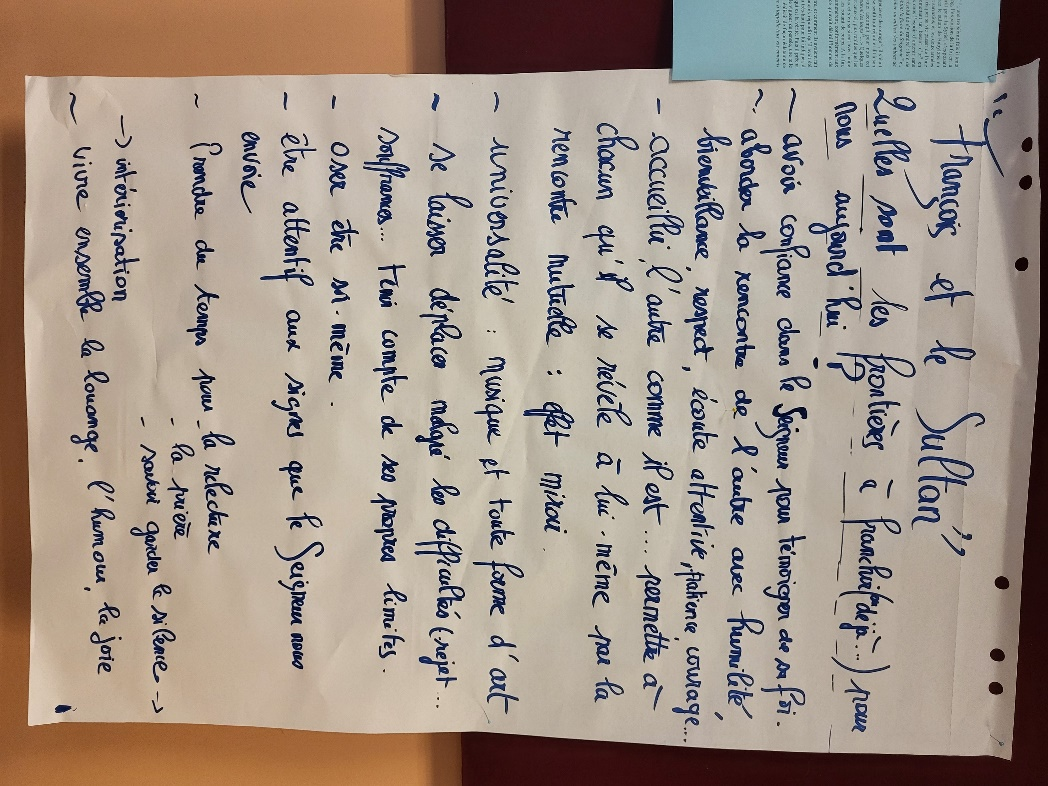 "François et le Sultan"
Quelles sont les frontières à franchir (ou déjà...) pour
nous aujourd'hui ?
~ avoir confiance dans le Seigneur pour témoigner de sa foi.
~ aborder la rencontre de l'autre avec humilité,
bienveillance, respect, écoute attentive, patience, courage...
- accueillir l'autre comme il est... permettre à
chacun qu'il se révèle à lui-même par la
rencontre mutuelle : effet miroir.
- universalité : musique et toute forme d'art
~ se laisser déplacer malgré les difficultés (rejet...
souffrances... tenir compte de ses propres limites.
- oser être soi-même.
- être attentif aux signes que le Seigneur nous
envoie
~ Prendre du temps pour - la relecture
- la prière
- savoir garder le silence →
→ intériorisation
~ vivre ensemble la louange, l'humour, la joie